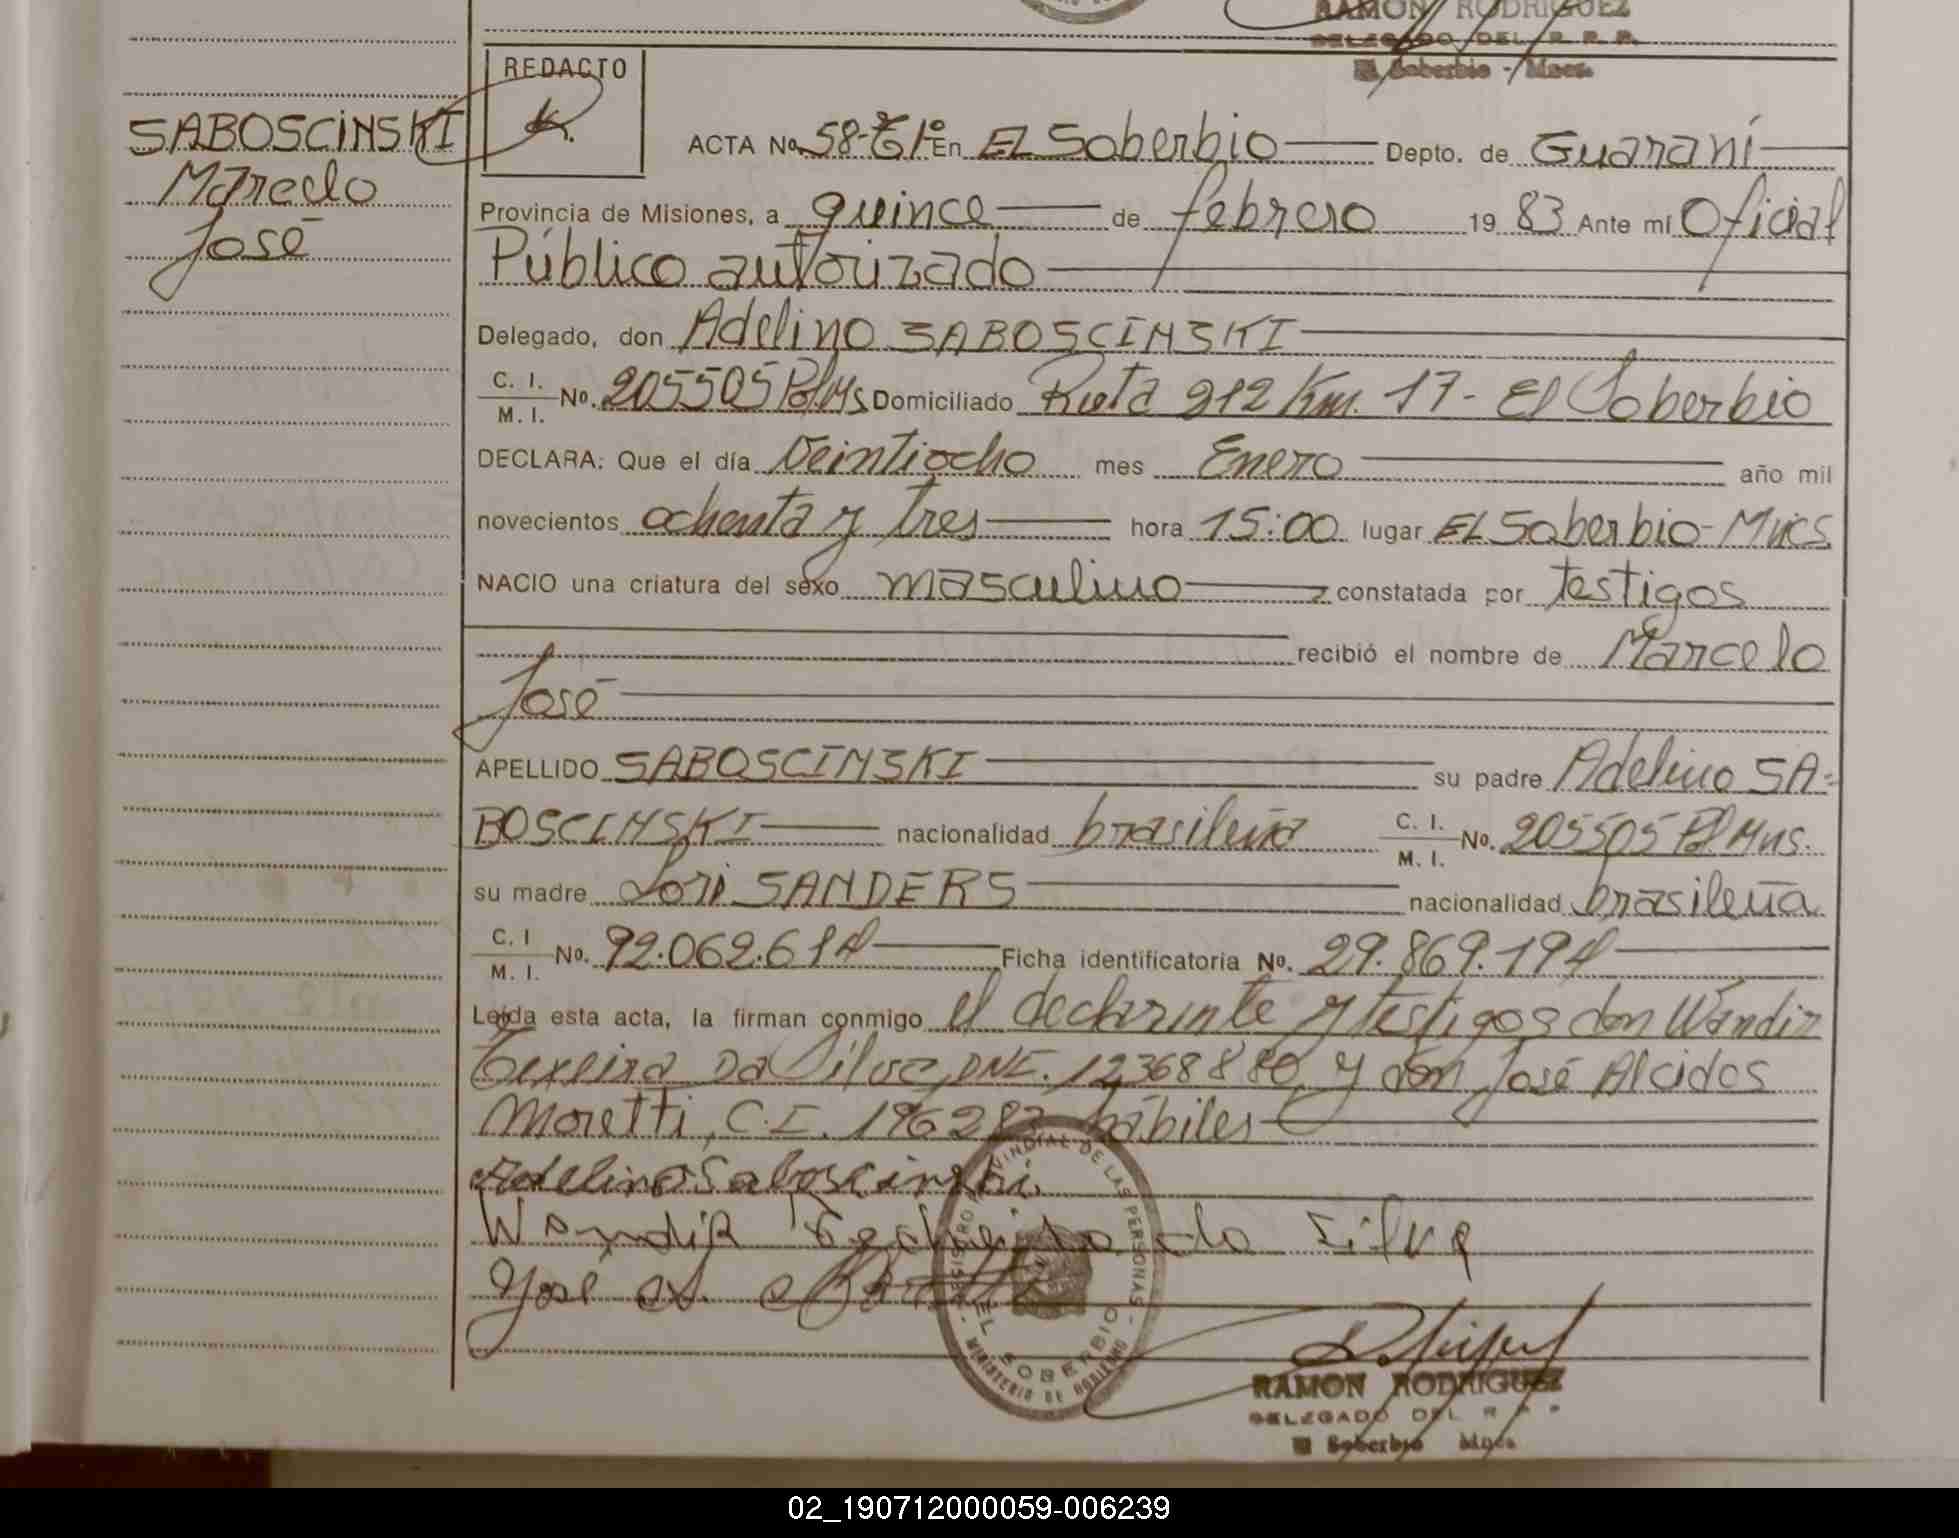 RAMON RODRIGUEZ
DELEGADO DEL R. R. P.
El Soberbio - Mnes.
REDACTO
SABOSCINSKI
Marcelo
José
ACTA No. 58-Tº1º En EL Soberbio Depto. de Guaraní
Provincia de Misiones, a quince de febrero 1983 Ante mí Oficial
Público autorizado
Delegado, don Adelino SABOSCINSKI
C. I.
M. I. No. 205505 Pol Ms Domiciliado Ruta 212 Km. 17 - El Soberbio
DECLARA: Que el día Veintiocho mes Enero año mil
novecientos ochenta y tres hora 15:00 lugar EL Soberbio-Mnes
NACIO una criatura del sexo masculino constatada por testigos
recibió el nombre de Marcelo
José
APELLIDO SABOSCINSKI su padre Adelino SA=
BOSCINSKI nacionalidad brasileña C. I.
M. I. No. 205505 Pol Mns.
su madre Lori SANDERS nacionalidad brasileña
C. I
M. I. No. 92.062.614 Ficha identificatoria No. 29.869.194
Leída esta acta, la firman conmigo el declarante y testigos don Wandir
Texeira Da Silva, DNI. 12368880, y don José Alcides
Moretti, C.I. 196282 hábiles
Adelino Saboscinski
Wandir Techeira da Silva
José A. Moretti
REGISTRO PROVINCIAL DE LAS PERSONAS
EL SOBERBIO
MINISTERIO DE GOBIERNO
RAMON RODRIGUEZ
DELEGADO DEL R P P
El Soberbio Mnes
02_190712000059-006239